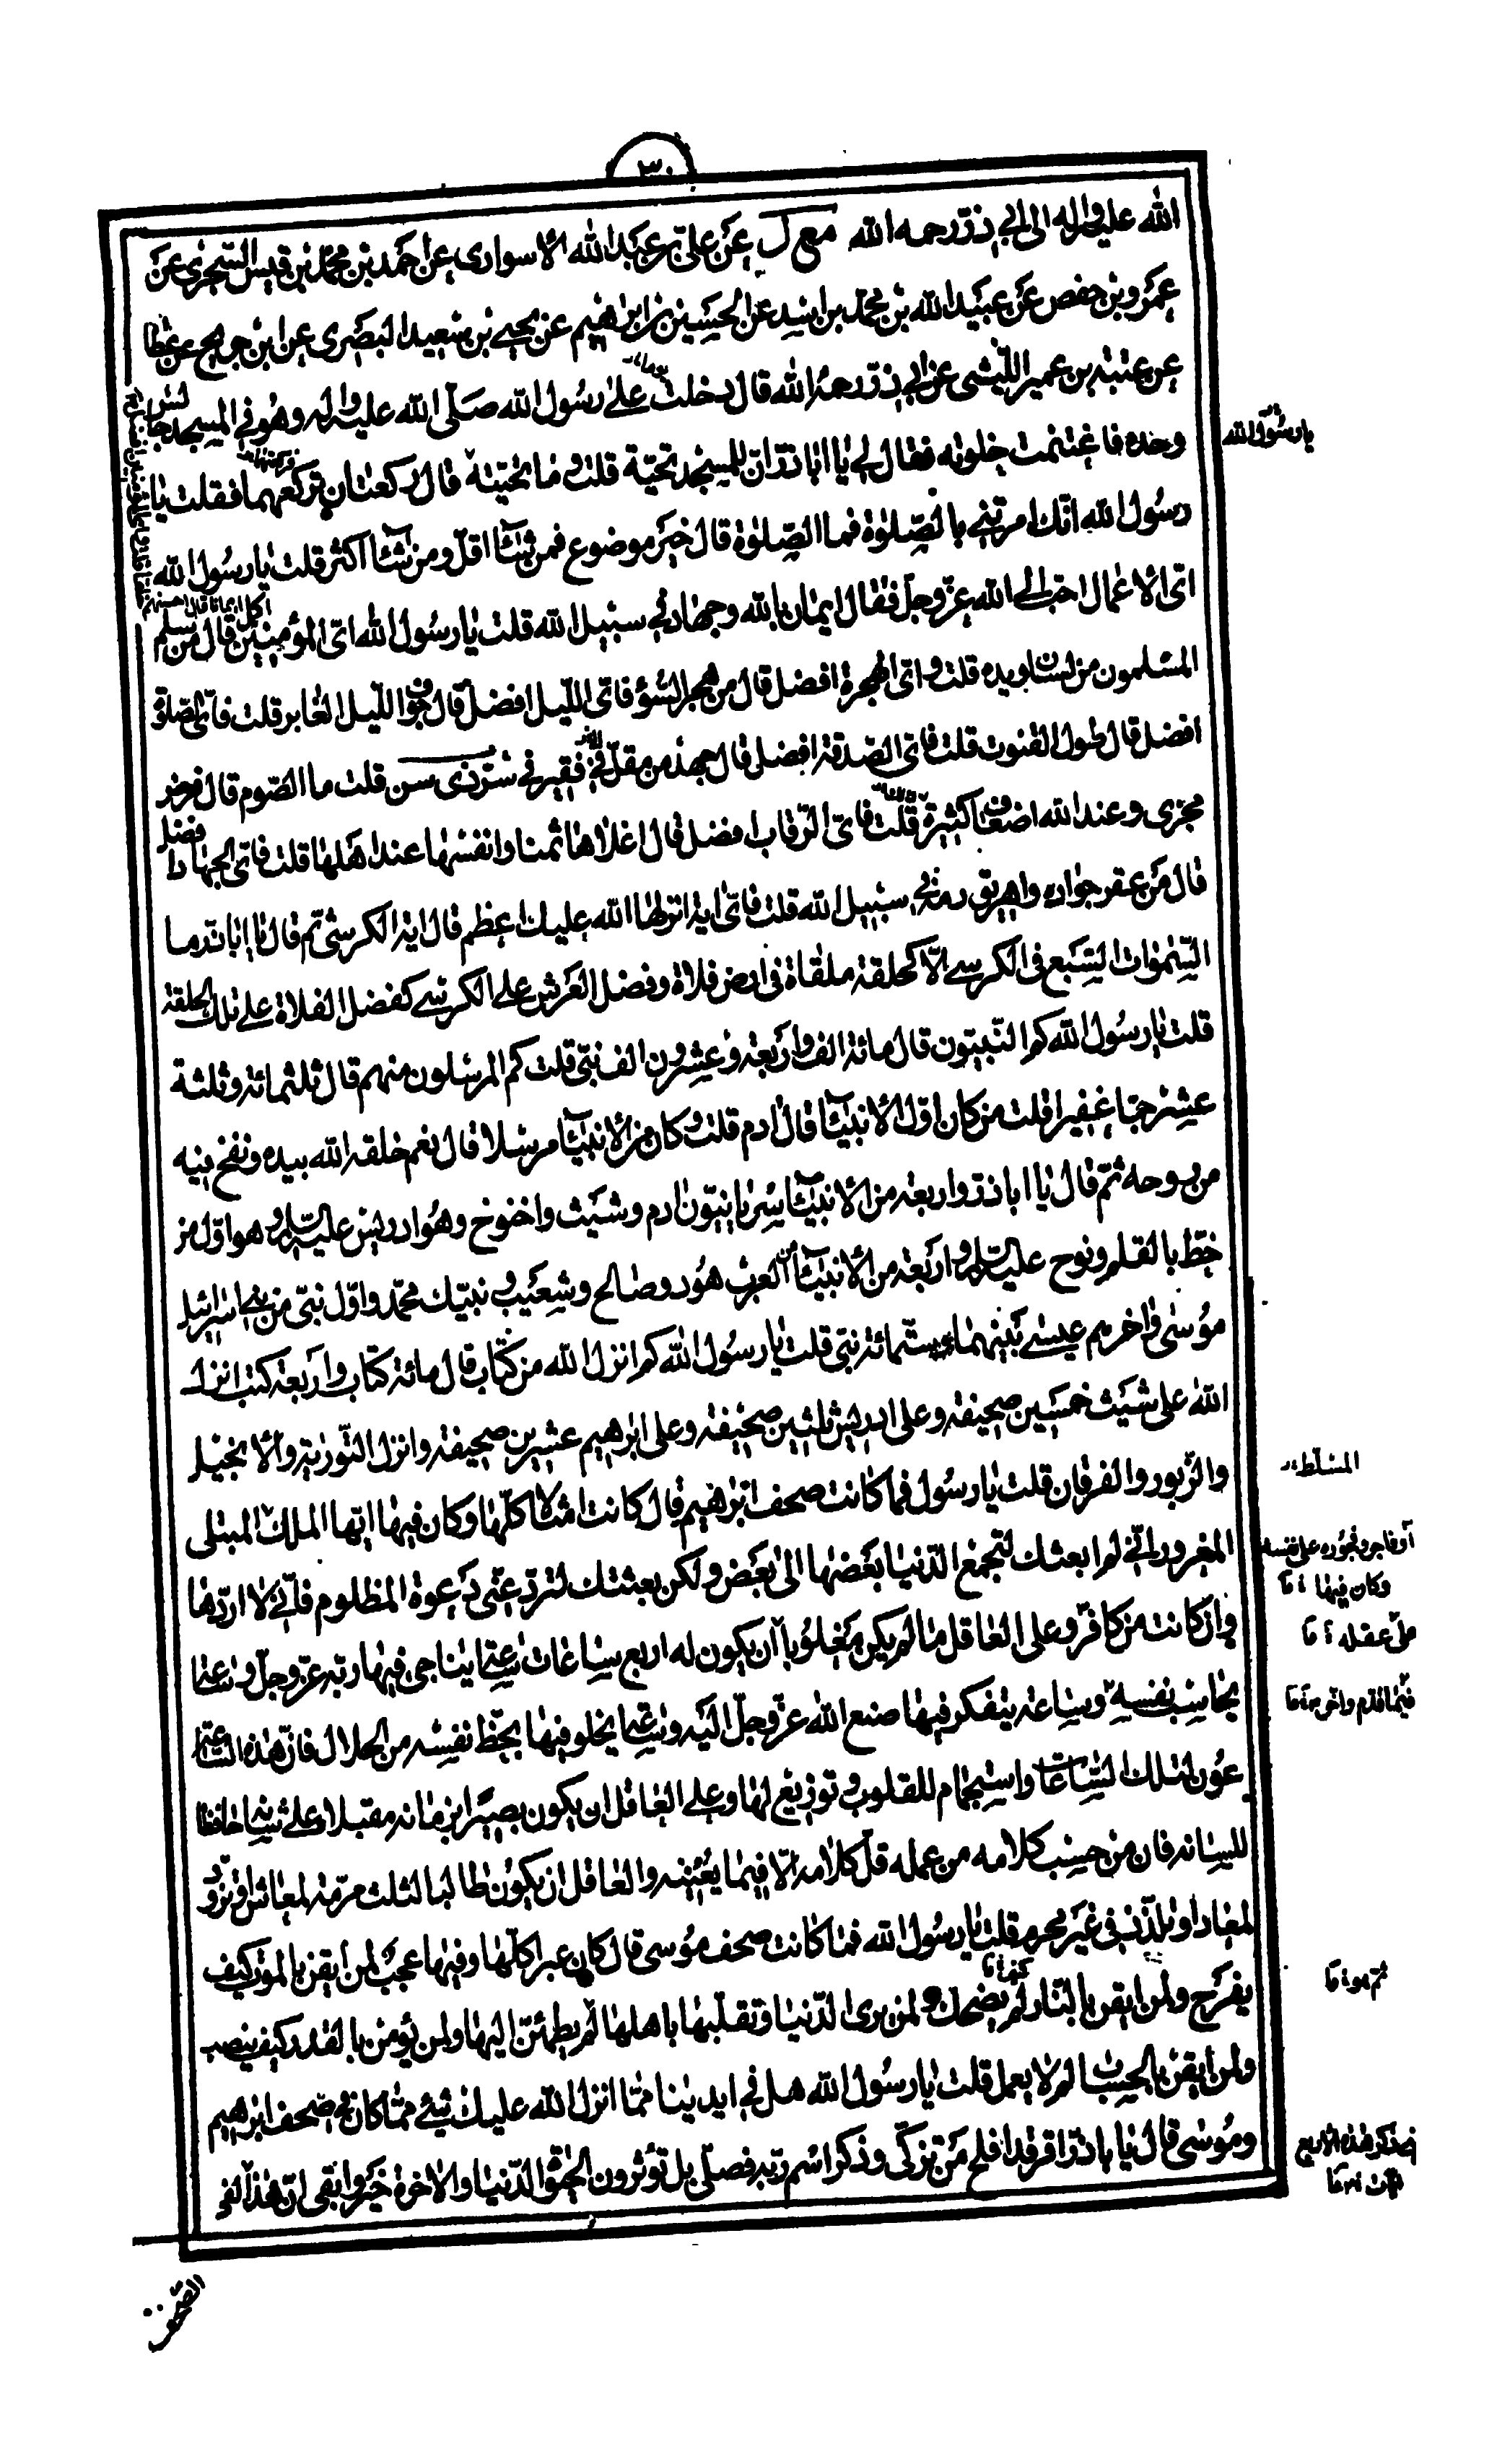 ٣٠
الله عليه واله الى ابي ذرّ رحمه الله مع ل عن علىّ بن عبد الله الاسوارى عن احمد بن محمّد بن قيس السّجزى عن
عمرو بن حفص عن عبيد الله بن محمّد بن اسد عن الحسين بن ابراهيم عن يحيى بن سعيد البصرى عن ابن جريح عن عطا
عن عتبة بن عمير اللّيثى عن ابى ذرّ رحمه الله قال دخلت على رسول الله صلّى الله عليه واله وهو في المسجد جالس
وحده فاغتنمت خلوته فقال لى يا ابا ذرّ ان للمسجد تحيّة قلت وما تحيّته قال ركعتان تركعهما فقلت يا
يا رسول الله
رسول الله انّك امرتنى بالصّلوة فما الصّلوة قال خير موضوع فمن شآء اقلّ ومن شآء اكثر قلت يا رسول الله
اىّ الاعمال احبّ الى الله عزّ وجلّ فقال ايمان بالله وجهاد في سبيل الله قلت يا رسول الله اىّ المؤمنين اكمل ايمانا قال احسنهم قال من سلم
المسلمون من لسانه ويده قلت واىّ الهجرة افضل قال من هجر السّوء فاىّ اللّيل افضل قال جوف اللّيل الغابر قلت فاىّ الصّلوة
افضل قال طول القنوت قلت فاىّ الصّدقة افضل قال جهد من مقلّ الى فقير في سرّ ذى سن قلت ما الصّوم قال فرض
مجزى وعند الله اضعاف كثيرة قلت فاىّ الرّقاب افضل قال اغلاها ثمنا وانفسها عند اهلها قلت فاىّ الجهاد افضل
قال من عقر جواده واهريق دمه في سبيل الله قلت فاىّ اية انزلها الله عليك اعظم قال اية الكرسىّ ثم قال يا ابا ذر ما
السّموات السّبع فى الكرسى الّا كحلقة ملقاة فى ارض فلاة وفضل العرش على الكرسى كفضل الفلاة على تلك الحلقة
قلت يا رسول الله كم النّبيّون قال مائة الف واربعة وعشرون الف نبىّ قلت كم المرسلون منهم قال ثلثمائة وثلثة
عشر جمّا غفيرا قلت من كان اوّل الانبيآء قال ادم قلت وكان من الانبيآء مرسلا قال نعم خلقه الله بيده ونفخ فيه
من روحه ثمّ قال يا ابا ذرّ اربعة من الانبيآء سريانيّون ادم وشيث واخنوخ وهو ادريس عليه السّلم وهو اوّل من
خطّ بالقلم ونوح عليه السّلم واربعة من الانبيآء من العرب هود وصالح وشعيب ونبيّك محمّد واوّل نبىّ من بنى اسرائيل
موسى واخرهم عيسى بينهما ستّمائة نبىّ قلت يا رسول الله كم انزل الله من كتاب قال مائة كتاب واربعة كتب انزل
الله على شيث خمسين صحيفة وعلى ادريس ثلثين صحيفة وعلى ابرهيم عشرين صحيفة وانزل التّورية والانجيل
والزّبور والفرقان قلت يا رسول فما كانت صحف ابرهيم قال كانت امثالا كلّها وكان فيها ايّها الملك المبتلى
المسلّط
المغرور انّى لم ابعثك لتجمع الدّنيا بعضها الى بعض ولكن بعثتك لتردّ عنّى دعوة المظلوم فانّى لا اردّها
أو فاجر وفجوره على نفسه
وكان فيها
وان كانت من كافر وعلى العاقل ما لم يكن مغلوبا أن يكون له اربع ساعات ساعة يناجى فيها ربّه عزّ وجلّ وساعة
على عقله
يحاسب نفسه وساعة يتفكر فيها صنع الله عزّ وجلّ اليه وساعة يخلو فيها بحظّ نفسه من الحلال فانّ هذه السّاعة
فيما قدم واخر
عون لتلك السّاعات واستجمام للقلوب وتوزيع لها وعلى العاقل ان يكون بصيرا بزمانه مقبلا وعلى شانه حافظا
للسانه فان من حسب كلامه من عمله قلّ كلامه الّا فيما يعنيه والعاقل ان يكون طالبا لثلث مرمّة لمعاش او تزوّد
لمعاد او تلذّذ فى غير محرم قلت يا رسول الله فما كانت صحف موسى قال كان عبرا كلّها وفيها عجب لمن أيقن بالموت كيف
يفرح ولمن ايقن بالنّار لم يضحك ولمن يرى الدّنيا وتقلّبها باهلها لم يطمئنّ اليها ولمن يؤمن بالقدر كيف ينصب
ثم هو
ولمن أيقن بالحساب لم لا يعمل قلت يا رسول الله هل في ايدينا ممّا انزل الله عليك شئ ممّا كان فى صحف ابرهيم
وموسى قال يا باذرّ اقر قد افلح من تزكّى وذكر اسم ربّه فصلّى بل تؤثرون الحيوة الدّنيا والاخرة خير وابقى انّ هذا لفى
هذه الاربع
الصّحف